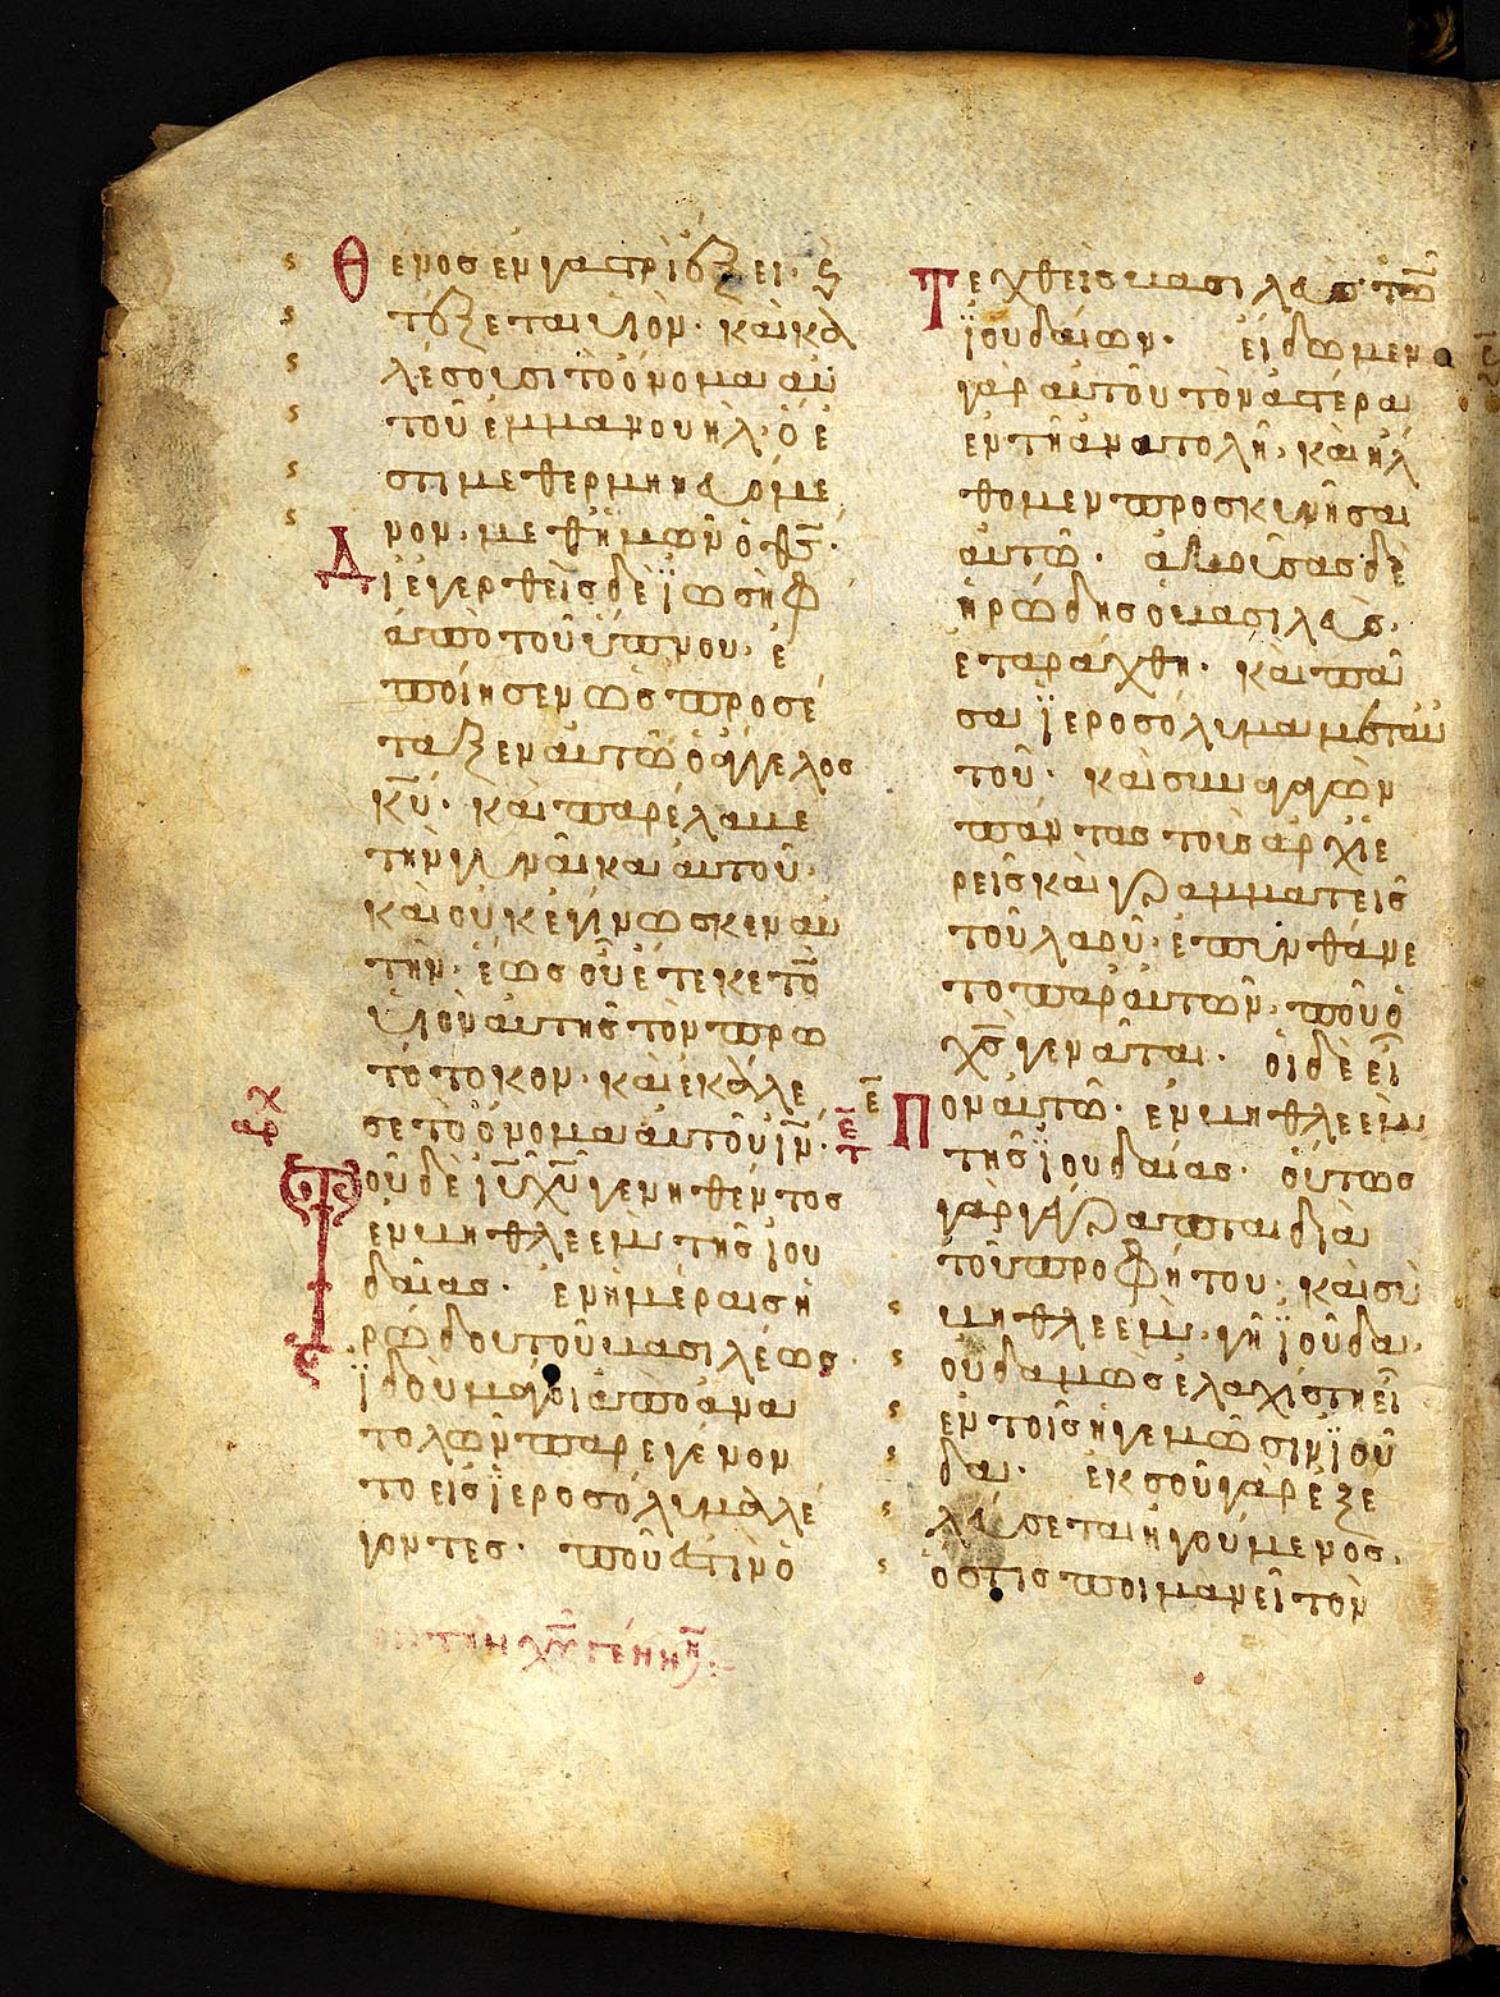 Θενος εν γαστρὶ ἕξει· ϗ
τέξεται υἱὸν· καὶ κα
λέσουσι τὸ ὄνομα αὐ
τοῦ ἐμμανουήλ· ὅ ἐ
στι μεθερμηνευόμε
νον· μεθ ἡμῶν ὁ θς̅·
Διεγερθεὶς δὲ ϊωσὴφ
ἀπὸ τοῦ ὕπνου· ἐ
ποίησεν ὡς προσέ
ταξεν αὐτῶ ὁ ἄγγελος
κ̅υ· καὶ παρέλαβε
τὴν γυναῖκα αὐτοῦ·
καὶ οὐκ ἐγίνωσκεν αὐ
τὴν· ἕως οὗ ἔτεκε το̅
υἱὸν αὐτῆς τὸν πρω
τότοκον· καὶ ἐκάλε
σε τὸ ὄνομα αὐτοῦ ιν̅·
ε̅
τ
αρχ
Τοῦ δὲ ιυ̅ χυ̅ γενηθέντος
ἐν βηθλεεὶμ τῆς ἰου
δαίας· ἐν ἡμέραις ἡ
ρώδου τοῦ βασιλέως·
ϊδοὺ μάγοι ἀπὸ ἀνα
τολῶν παρεγένον
το εἰς ϊεροσόλυμα λέ
γοντες· ποῦ ἐστὶν ὁ
τῆ χυ̅ γενν
Τεχθεὶς βασιλεὺς τω̅
ϊουδαίων· εἴδωμεν
γὰρ αὐτοῦ τὸν ἀστέρα
ἐν τῆ ἀνατολῆ· καὶ ἤλ
θομεν προσκυνῆσαι
αὐτῶ· ἀκούσας δὲ
ἡρώδης ὁ βασιλεὺς·
ἐταράχθη· καὶ πᾶ
σα ϊεροσόλυμα μετ αὐ
τοῦ· καὶ συναγαγὼν
πάντας τοὺς ἀρχϊε
ρεῖς καὶ γραμματεῖς
τοῦ λαοῦ· ἐπυνθάνε
το παρ αὐτῶν· ποῦ ὁ
χς̅ γεννᾶται· οἱ δὲ εἶ
ε̅ Πον αὐτῶ· ἐν βηθλεεὶμ
τῆς ϊουδαίας· οὕτως
γὰρ γέγραπται διὰ
τοῦ προφήτου· καὶ σὺ
βηθλεεὶμ· γῆ ϊοῦδα·
οὐδαμῶς ἐλαχίστη εἶ
ἐν τοῖς ἡγεμῶσιν ϊού
δα· ἐκ σοῦ γὰρ ἐξε
λεύσεται ἡγούμενος·
ὅστις ποιμανεῖ τὸν